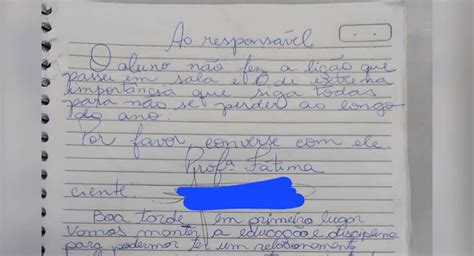 Ao responsável
O aluno não fez a lição que
passei em sala e é de extrema
importância que siga todas
para não se perder ao longo
do ano.
Por favor, converse com ele.
Profª Fátima
ciente:
Boa tarde, em primeiro lugar
vamos manter a educação e disciplina
para podermos ter um relacionamento